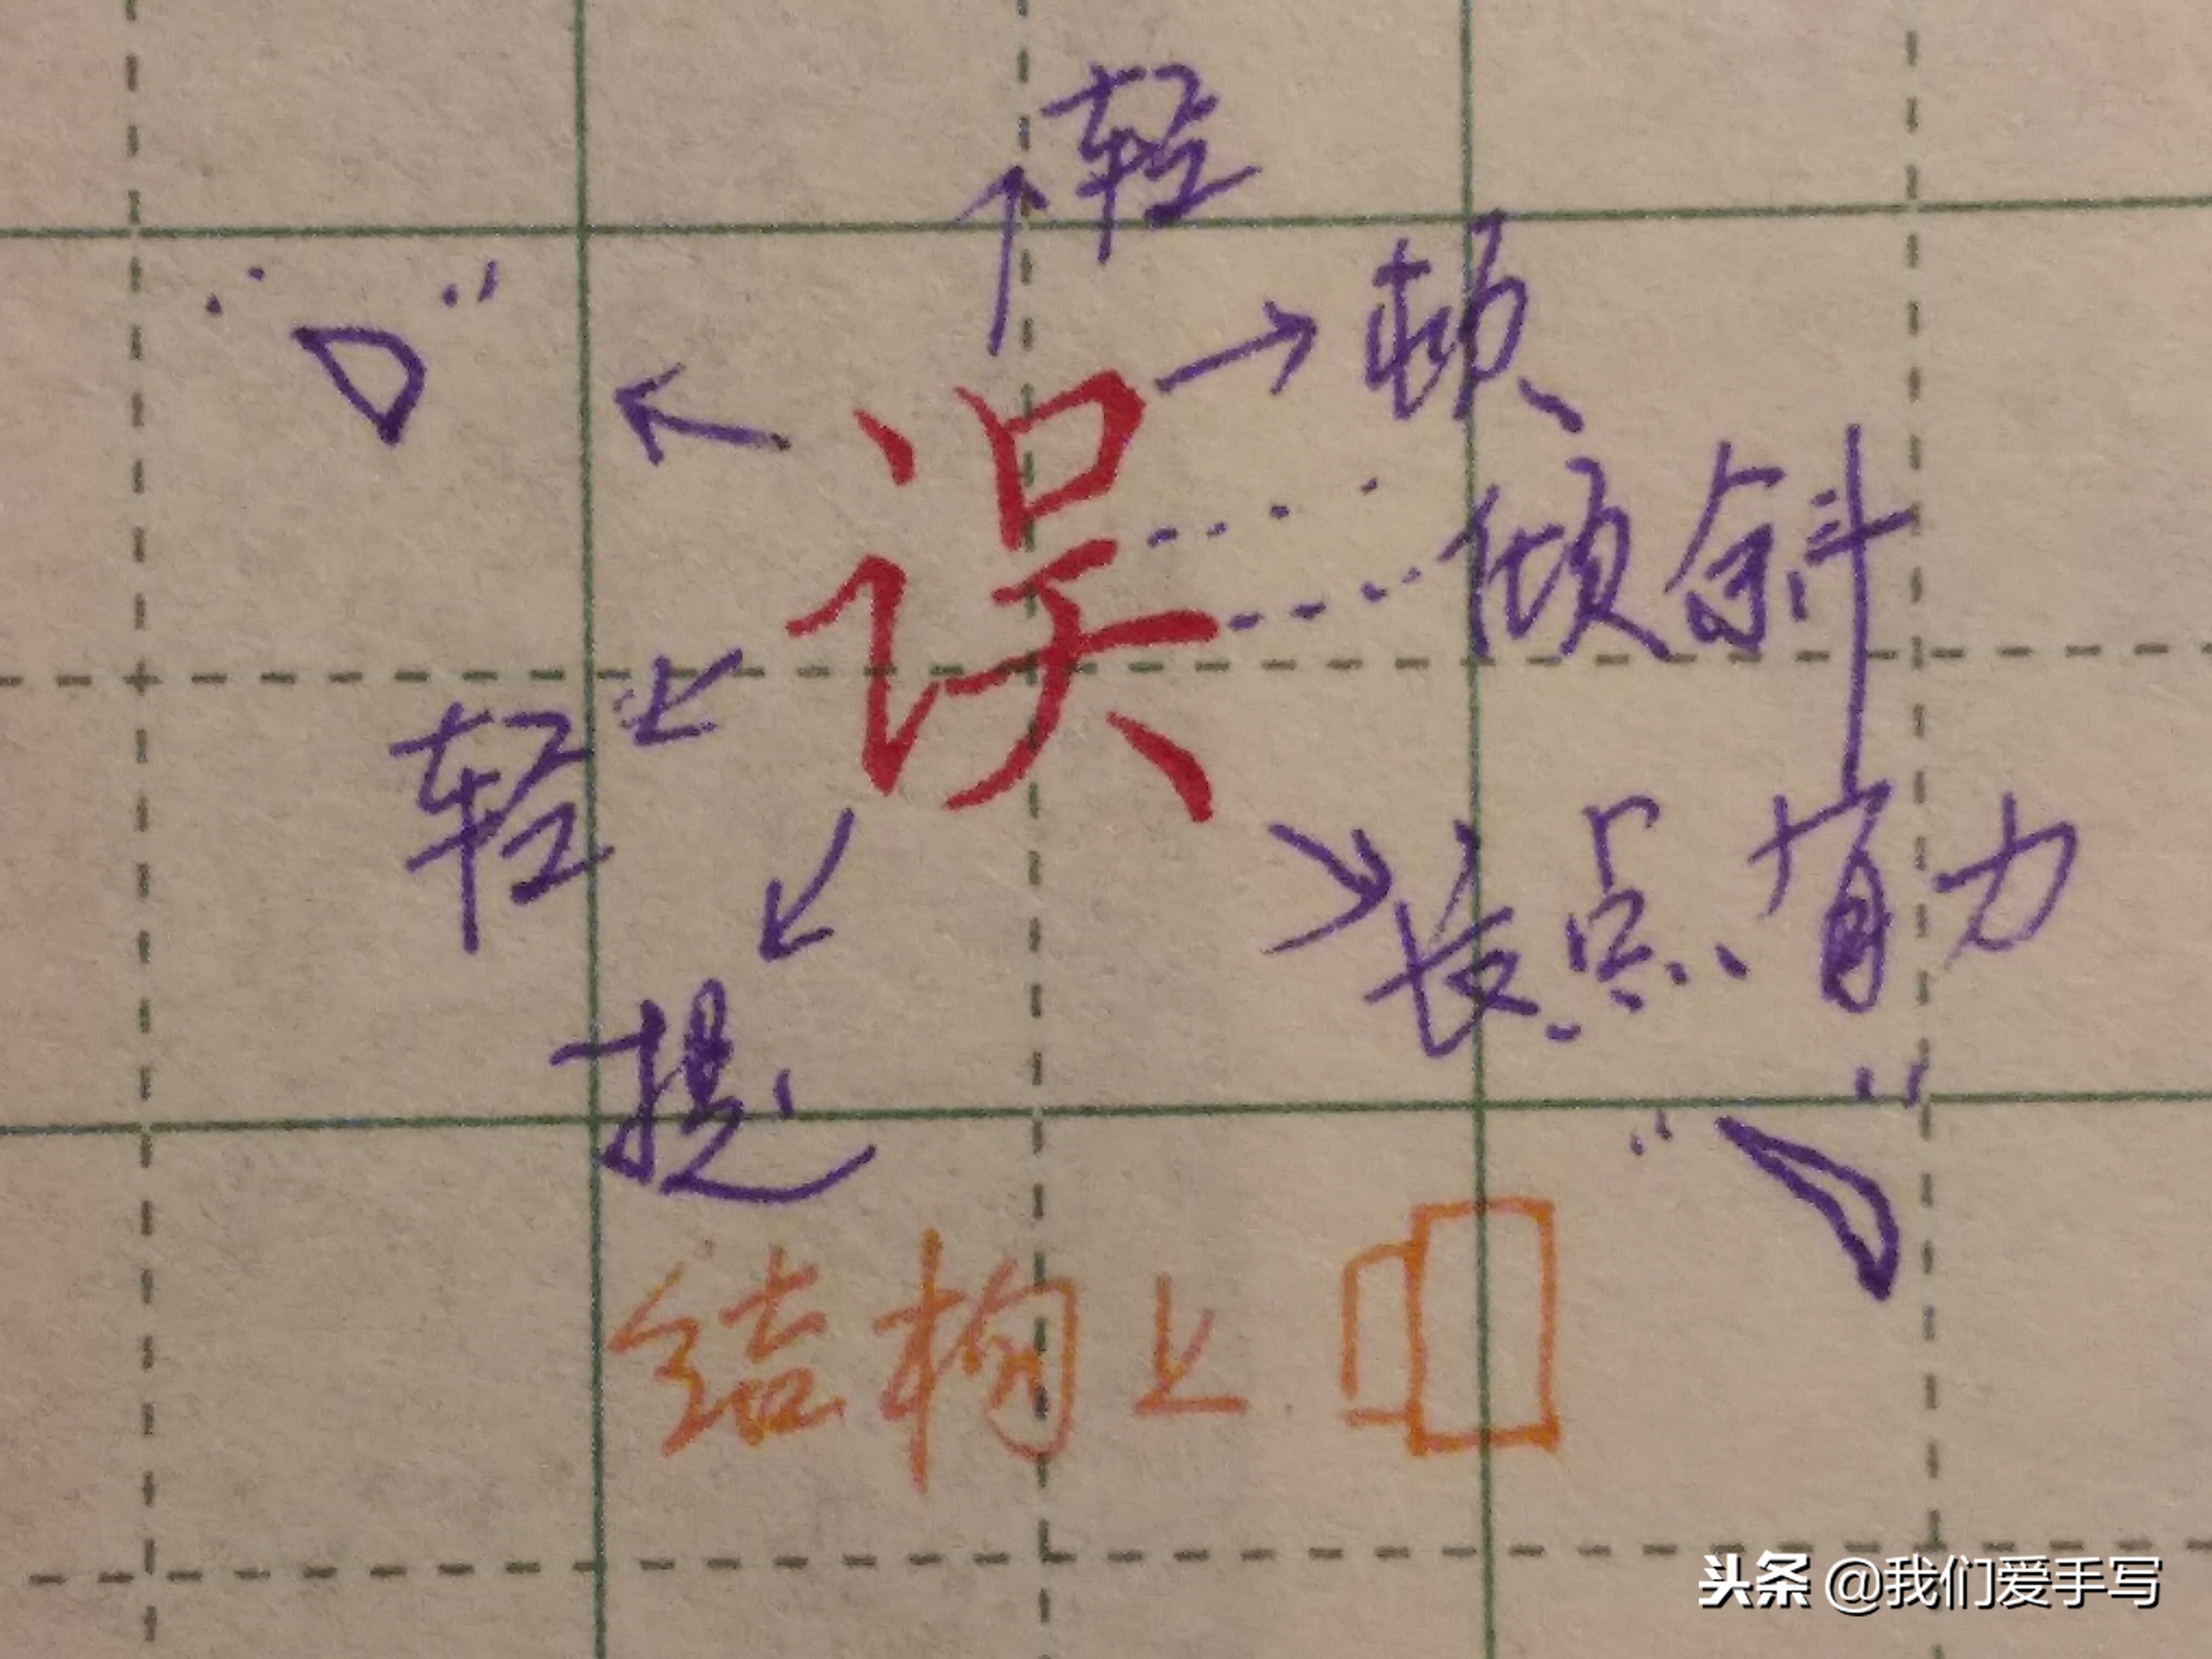 轻
顿
误
倾斜
轻
长点.有力
提
结构上
头条 @我们爱手写